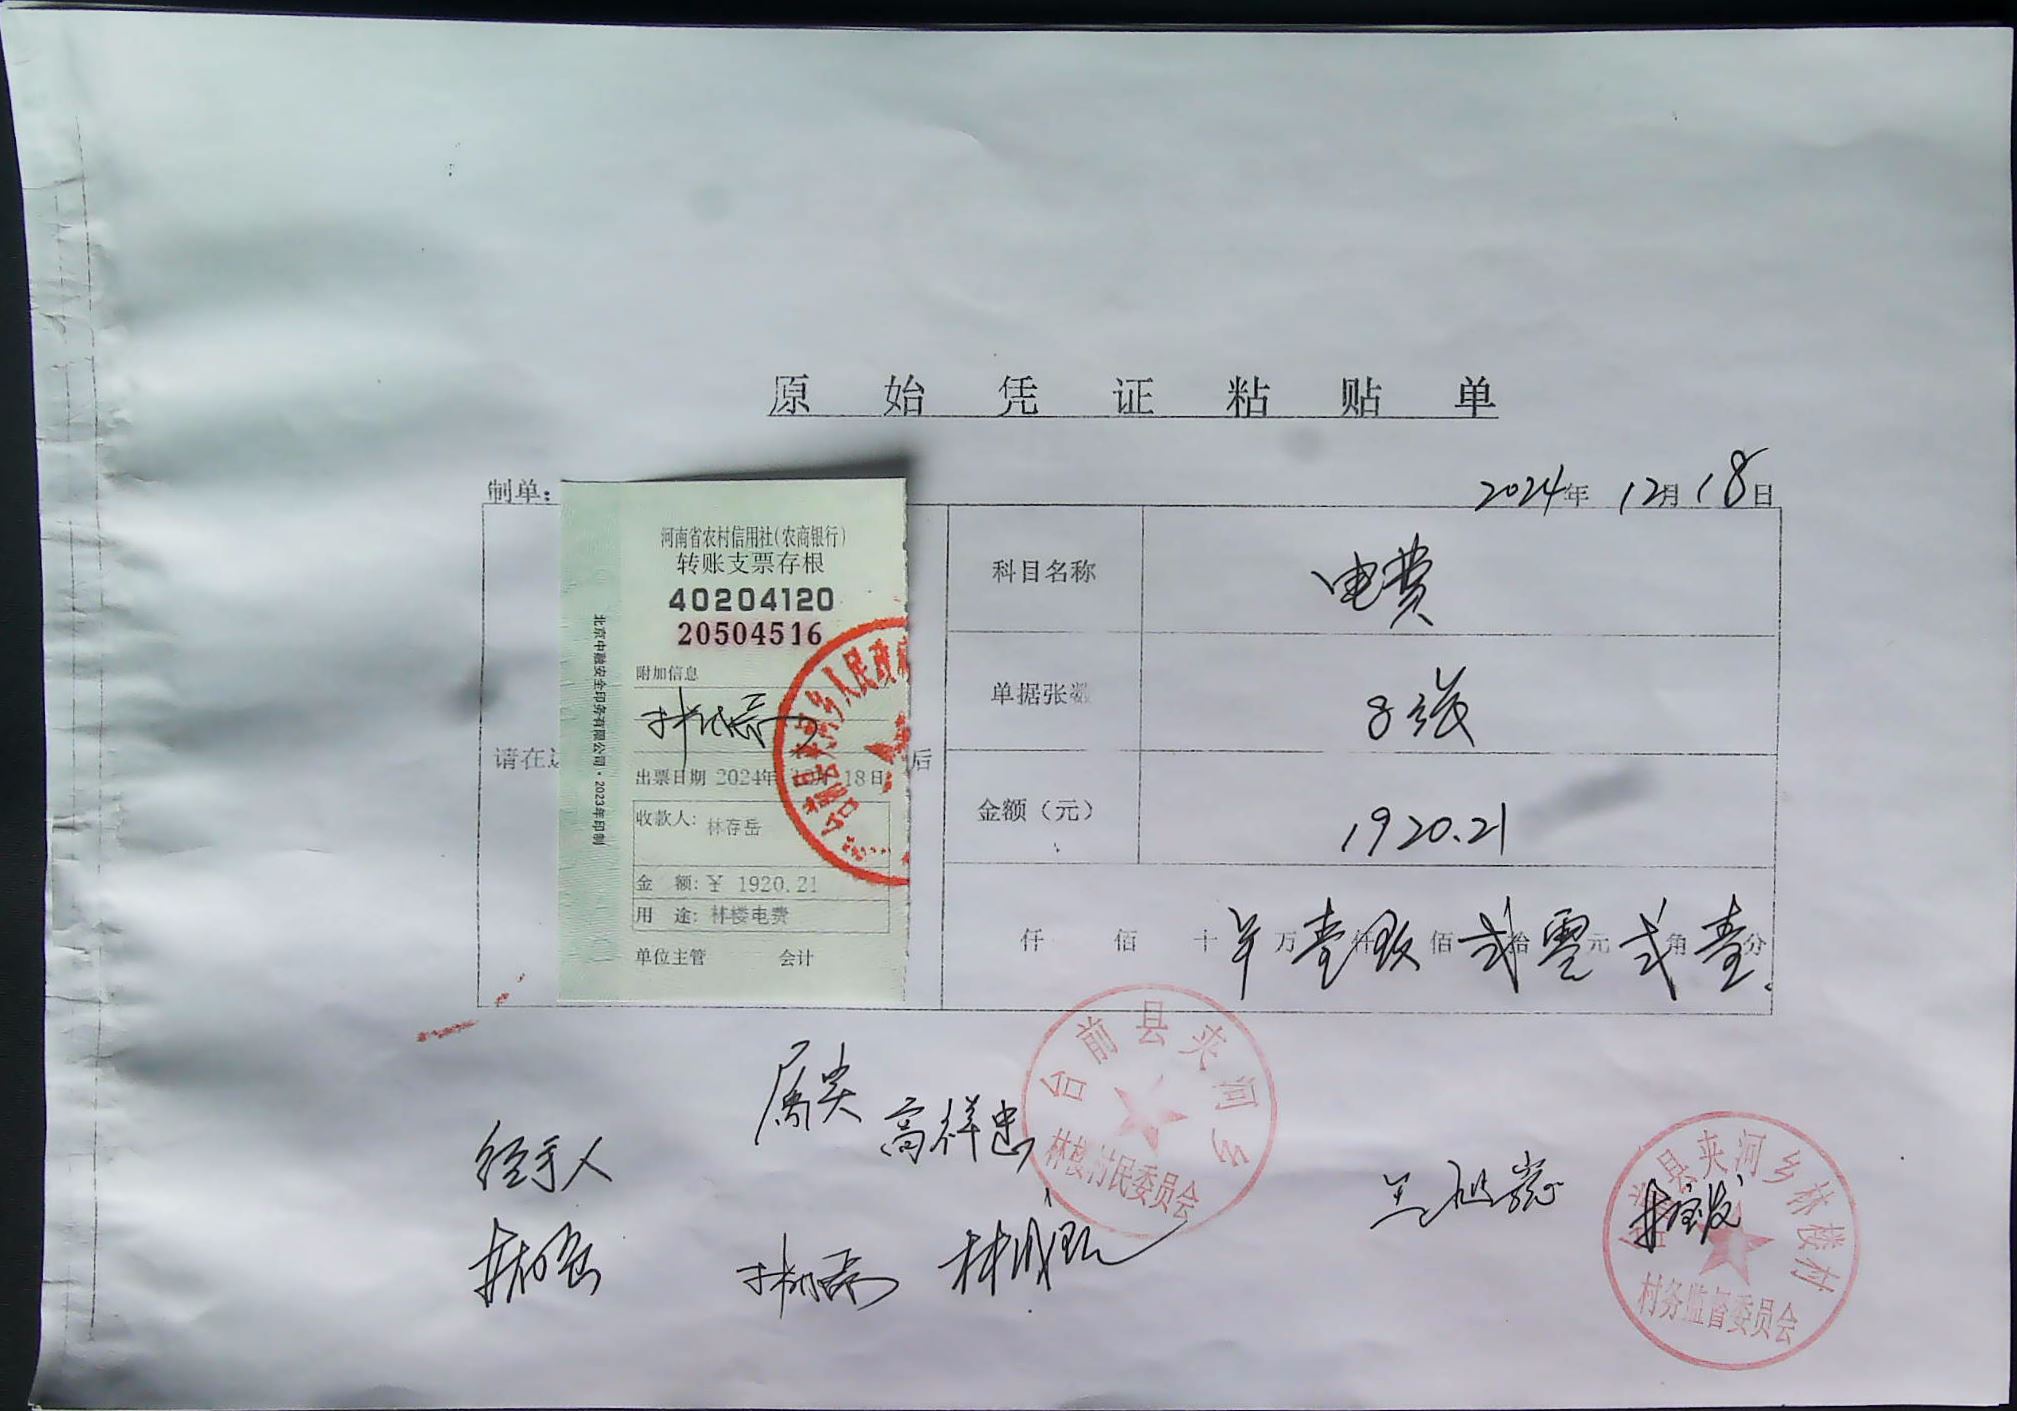 原始凭证粘贴单
制单：
2024年 12月18日
河南省农村信用社(农商银行)
转账支票存根
40204120
20504516
附加信息
出票日期 2024年 18日
收款人: 林存岳
金 额: ¥ 1920.21
用 途: 林楼电费
单位主管 会计
北京中融安全印务有限公司·2023年印制
请在 后
科目名称 电费
单据张数 8张
金额（元） 1920.21
仟 佰 十 万 壹 仟 玖 佰 贰 拾 零 元 贰 角 壹 分
台前县夹河乡
林楼村民委员会
经手人
高祥忠
台前县夹河乡林楼村
村务监督委员会